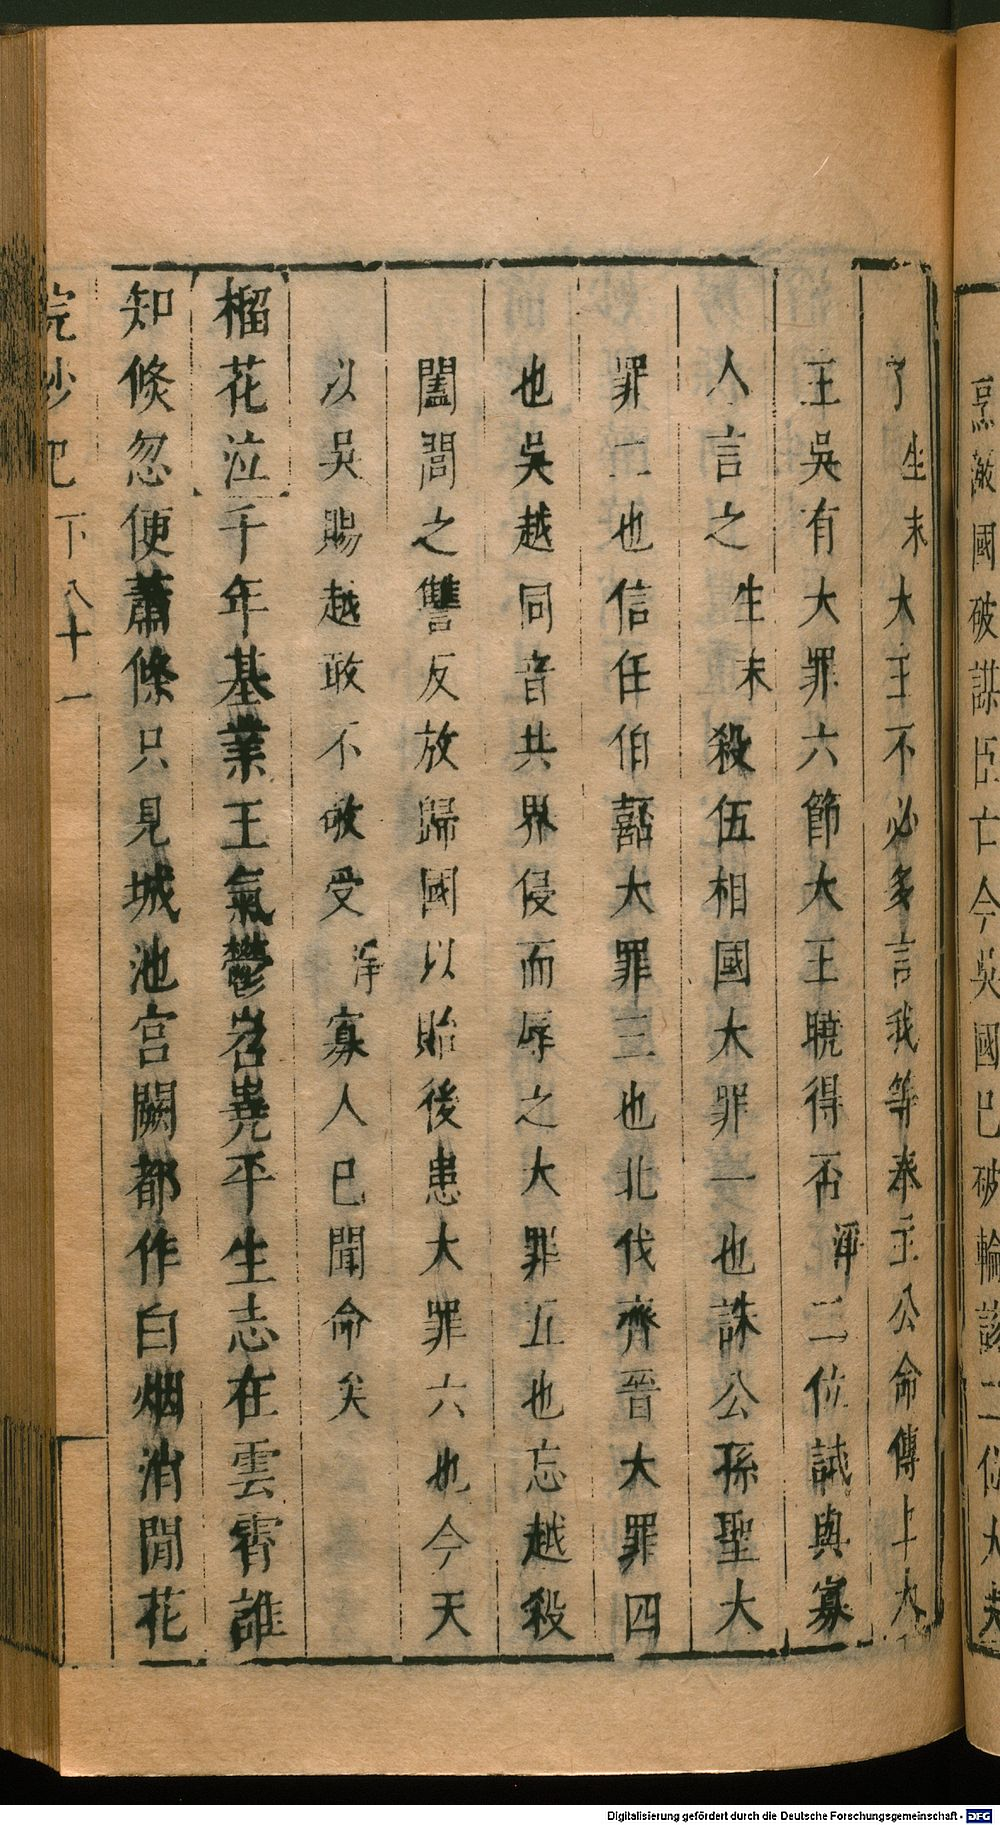 烹敵國破謀臣亡今吳國已破輪該二位大夫
了生末大王不必多言我等奉主公命傳上大
王吳有大罪六節大王曉得否淨二位試與寡
人言之生末殺伍相國大罪一也誅公孫聖大
罪二也信任伯嚭大罪三也北伐齊晉大罪四
也吳越同音共界侵而辱之大罪五也忘越殺
闔閭之讐反放歸國以貽後患大罪六也今天
以吳賜越敢不敬受淨寡人已聞命矣
榴花泣千年基業王氣鬱岧嶤平生志在雲霄誰
知倏忽便蕭條只見城池宮闕都作白烟消閒花
浣紗記下 八十一
Digitalisierung gefördert durch die Deutsche Forschungsgemeinschaft - DFG